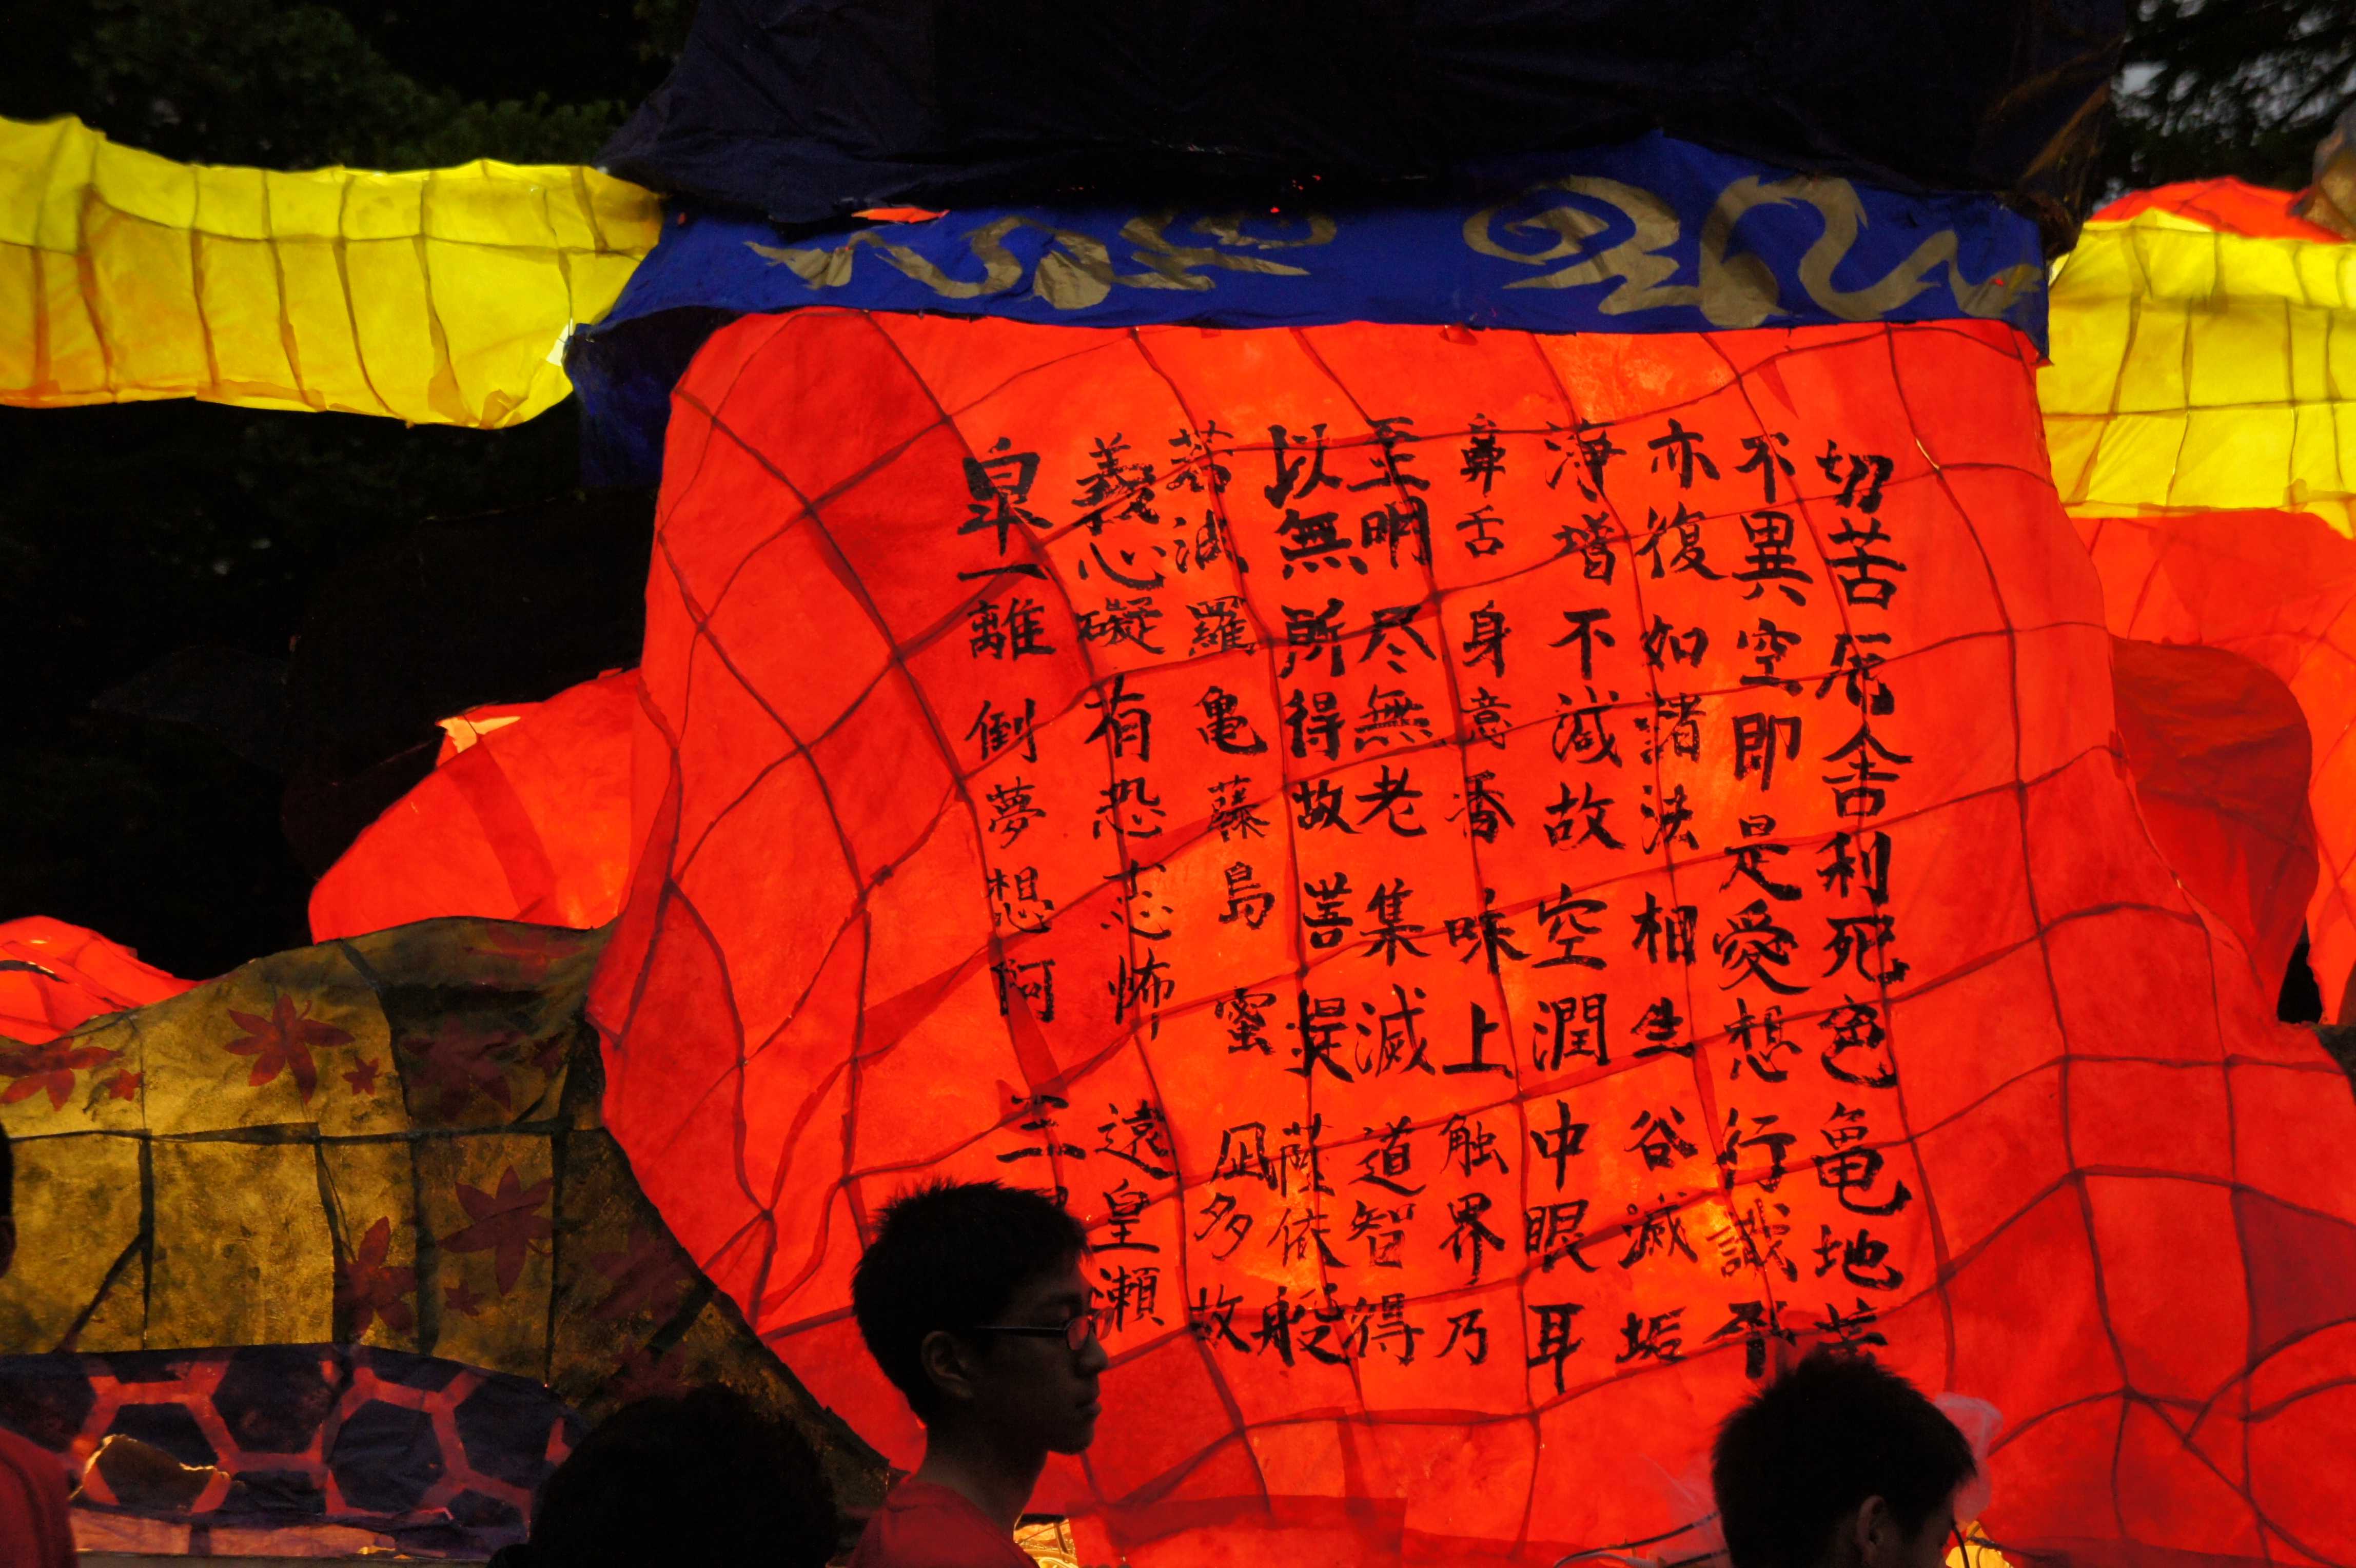 切苦厄舎利死色亀地
不異空即是愛想行識
亦復如諸法相生谷滅垢
浄増不減故空潤中眼耳
鼻舌身意香味上触界乃
至明尽無老集滅道智得
以無所得故菩提薩依般
若波羅亀藤島蜜凪多故
義心礙有恐志怖遠皇瀬
皐一離倒夢想阿三